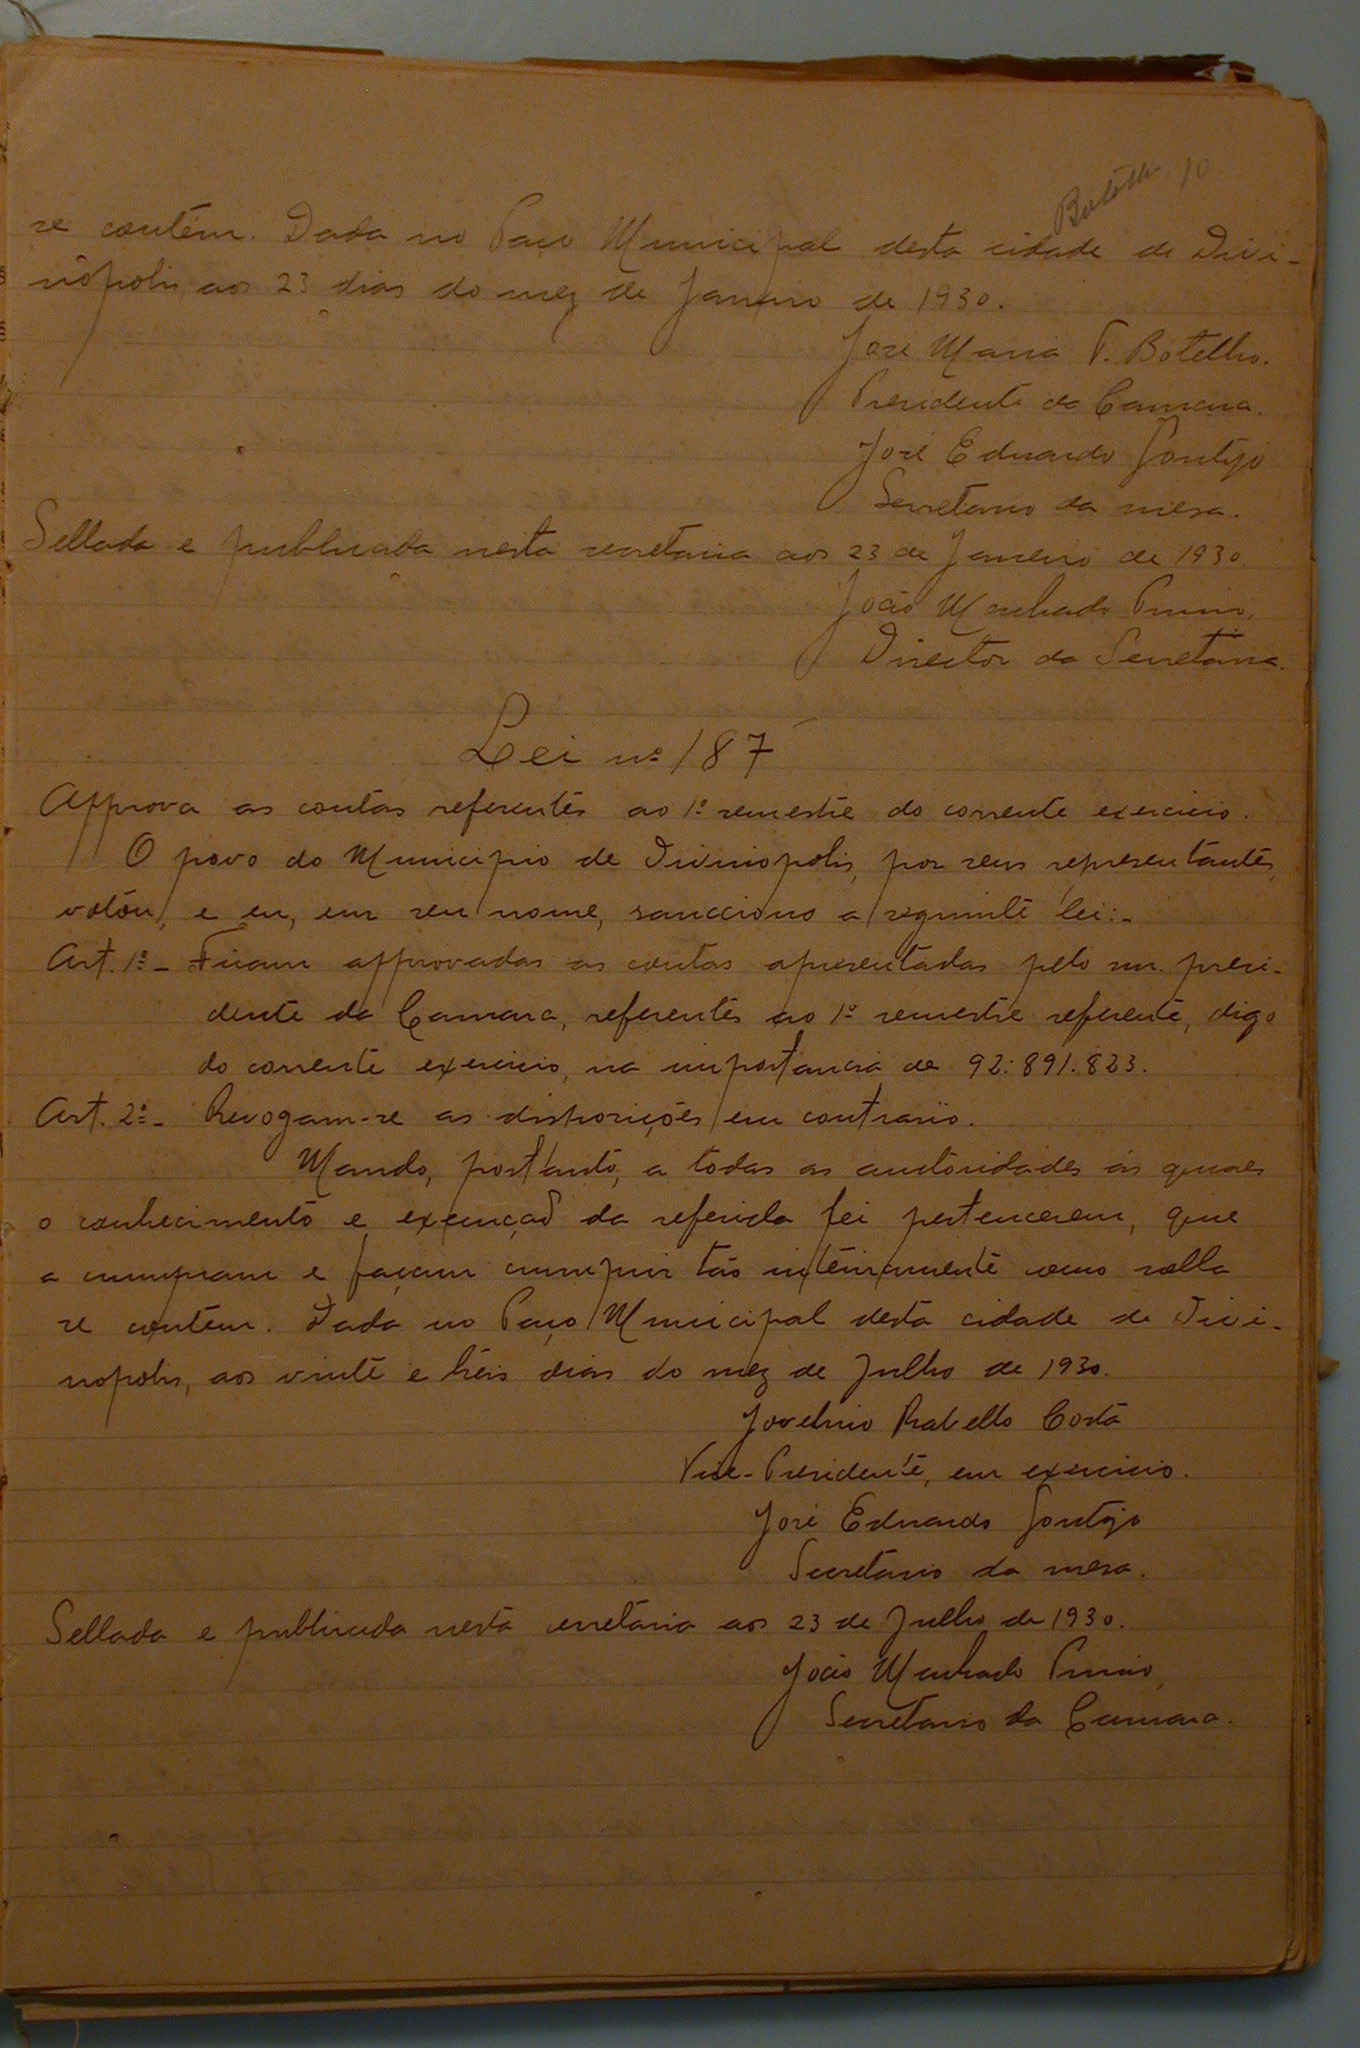 Botelho 10
se contém. Dada no Paço Municipal desta cidade de Divi-
nopolis, aos 23 dias do mez de Janeiro de 1930.
José Maria P. Botelho.
Presidente da Camara.
José Eduardo Gontijo
Secretario da mesa.
Sellada e publicada nesta secretaria aos 23 de Janeiro de 1930.
João Machado Primo,
Director da Secretaria.
Lei nº 187
Approva as contas referentes ao 1º semestre do corrente exercicio.
O povo do Municipio de Divinopolis, por seus representantes,
votou, e eu, em seu nome, sancciono a seguinte lei:-
Art. 1º- Ficam approvadas as contas apresentadas pelo snr. presi-
dente da Camara, referentes ao 1º semestre referente, digo
do corrente exercicio, na importancia de 92:891.823.
Art. 2º- Revogam-se as disposições em contrario.
Mando, portanto, a todas as auctoridades ás quaes
o conhecimento e execução da referida lei pertencerem, que
a cumpram e façam cumprir tão inteiramente como nella
se contem. Dada no Paço Municipal desta cidade de Divi-
nopolis, aos vinte e tres dias do mez de Julho de 1930.
Jovelino Rabello Costa
Vice-Presidente, em exercicio.
José Eduardo Gontijo
Secretario da mesa.
Sellada e publicada nesta secretaria aos 23 de Julho de 1930.
João Machado Primo,
Secretario da Camara.